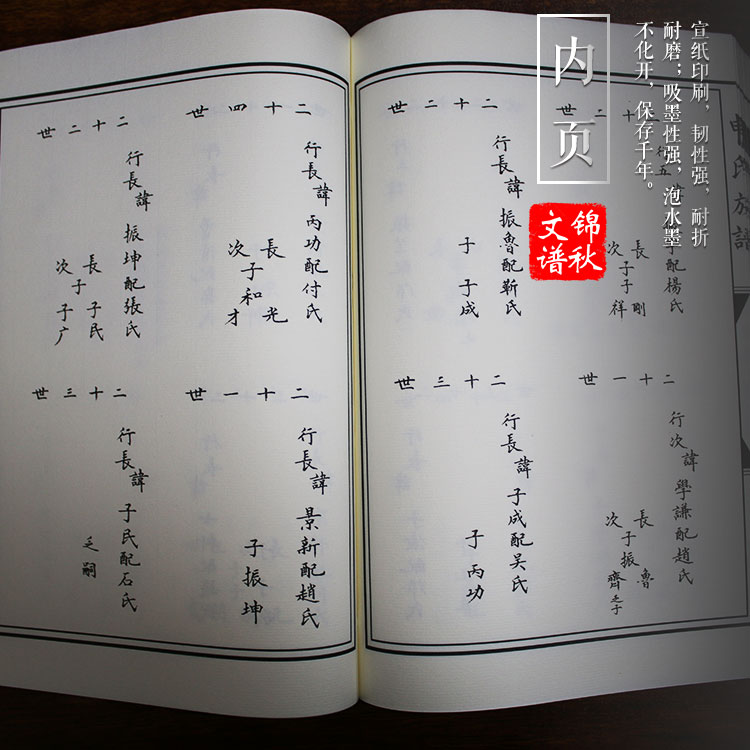 内页
宣纸印刷，韧性强，耐折
耐磨；吸墨性强，泡水墨
不化开，保存千年。
锦秋
文谱
氏族譜
行五
配楊氏
長 剛
子子
次 祥
二十一世
行次諱學謙配趙氏
長 魯
子振
次 齊乏子
二十二世
行長諱振魯配靳氏
子 子成
二十三世
行長諱子成配吴氏
子 丙功
二十四世
行長諱丙功配付氏
長 光
子和
次 才
二十一世
行長諱景新配趙氏
子振坤
二十二世
行長諱振坤配張氏
長 子民
子
次 子广
二十三世
行長諱子民配石氏
乏嗣